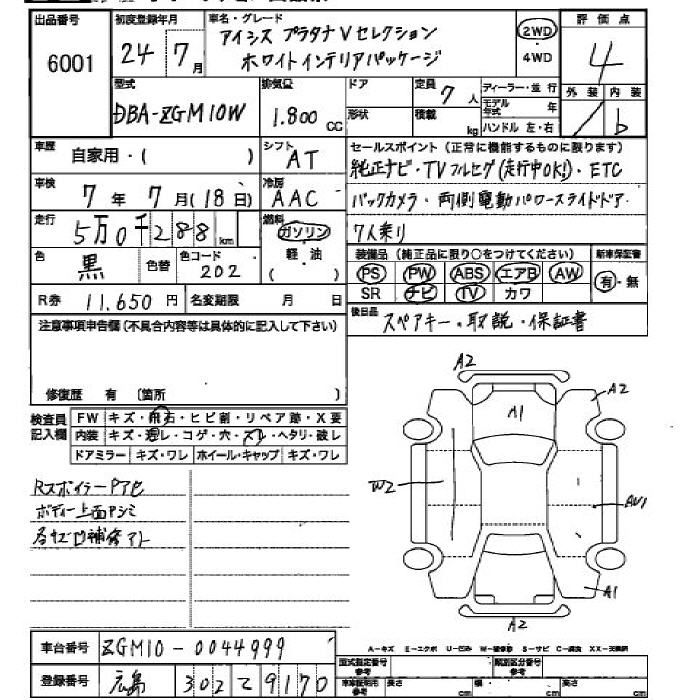 出品番号 初度登録年月 車名・グレード 評価点
6001 24年7月 アイシス プラタナVセレクション 2WD 4
ホワイトインテリアパッケージ 4WD
型式 排気量 ドア 定員 7人 ディーラー・並行 外装 内装
DBA-ZGM10W 1.800cc 形状 積載 kg モデル年式 年 ハンドル 左・右 b
車歴 自家用・( ) シフト AT セールスポイント(正常に機能するものに限ります)
純正ナビ・TVフルセグ(走行中OK!)・ETC
車検 7年7月(18日) 冷房 AAC バックカメラ・両側電動パワースライドドア・
走行 5万0千288km 燃料 ガソリン 7人乗り
軽・油
色 黒 色替 色コード 202 装備品(純正品に限り○をつけてください) 新車保証書
PS PW ABS エアB AW 有・無
( ) SR ナビ TV カワ
R券 11.650円 名変期限 月 日 後日品 スペアキー・取説・保証書
注意事項申告欄(不具合内容等は具体的に記入して下さい)
修復歴 有 〔箇所 〕
検査員記入欄 FW キズ・飛石・ヒビ割・リペア跡・X要
内装 キズ・汚レ・コゲ・穴・スレ・ヘタリ・破レ
ドアミラー キズ・ワレ ホイール・キャップ キズ・ワレ
A2
A2
A1
Rスポイラー
W2
ボディー上面
AU1
補修アト
A1
A2
A-キズ E-エクボ U-凹み W-補修跡 S-サビ C-腐食 XX-交換済
車台番号 ZGM10-0044999
型式指定番号 参考 類別区分番号 参考
登録番号 広島 302 て 9170 車庫証明用 参考 長さ cm 幅 cm 高さ cm